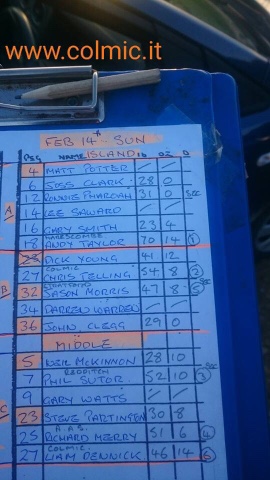 www.colmic.it
FEB 14th SUN
PEG NAME ISLAND lb OZ D
4 MATT POTTER / /
6 CLARK 28 0
12 RONNIE PHAROAH 31 0 SEC
A 14 LEE SAWARD / /
16 GARY SMITH 23 4
18 ANDY TAYLOR 70 14 1
DICK YOUNG 41 12
COLMIC
27 CHRIS TELLING 54 8 2
B 32 JASON MORRIS 47 8 5
34 DARREN WARREN / /
36 JOHN CLEGG 29 0
MIDDLE
5 NEIL MCKINNON 28 10
REDDITCH SEC
7 PHIL SUTOR 52 10 3
9 GARY WATTS / /
C 23 STEVE PARTINGTON 30 8
25 RICHARD MERRY 51 6 4
COLMIC
27 LIAM DENNICK 46 14 6